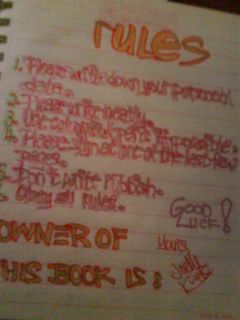 rules
1. Please write down your personal
data.
2. Please write neatly.
3. Use colourful pens if possible.
4. Please sign at one of the last few
pages.
5. Don't write rubbish.
6. Obey all rules.
GOOD
LUCK!
OWNER OF
THIS BOOK IS:
Yours